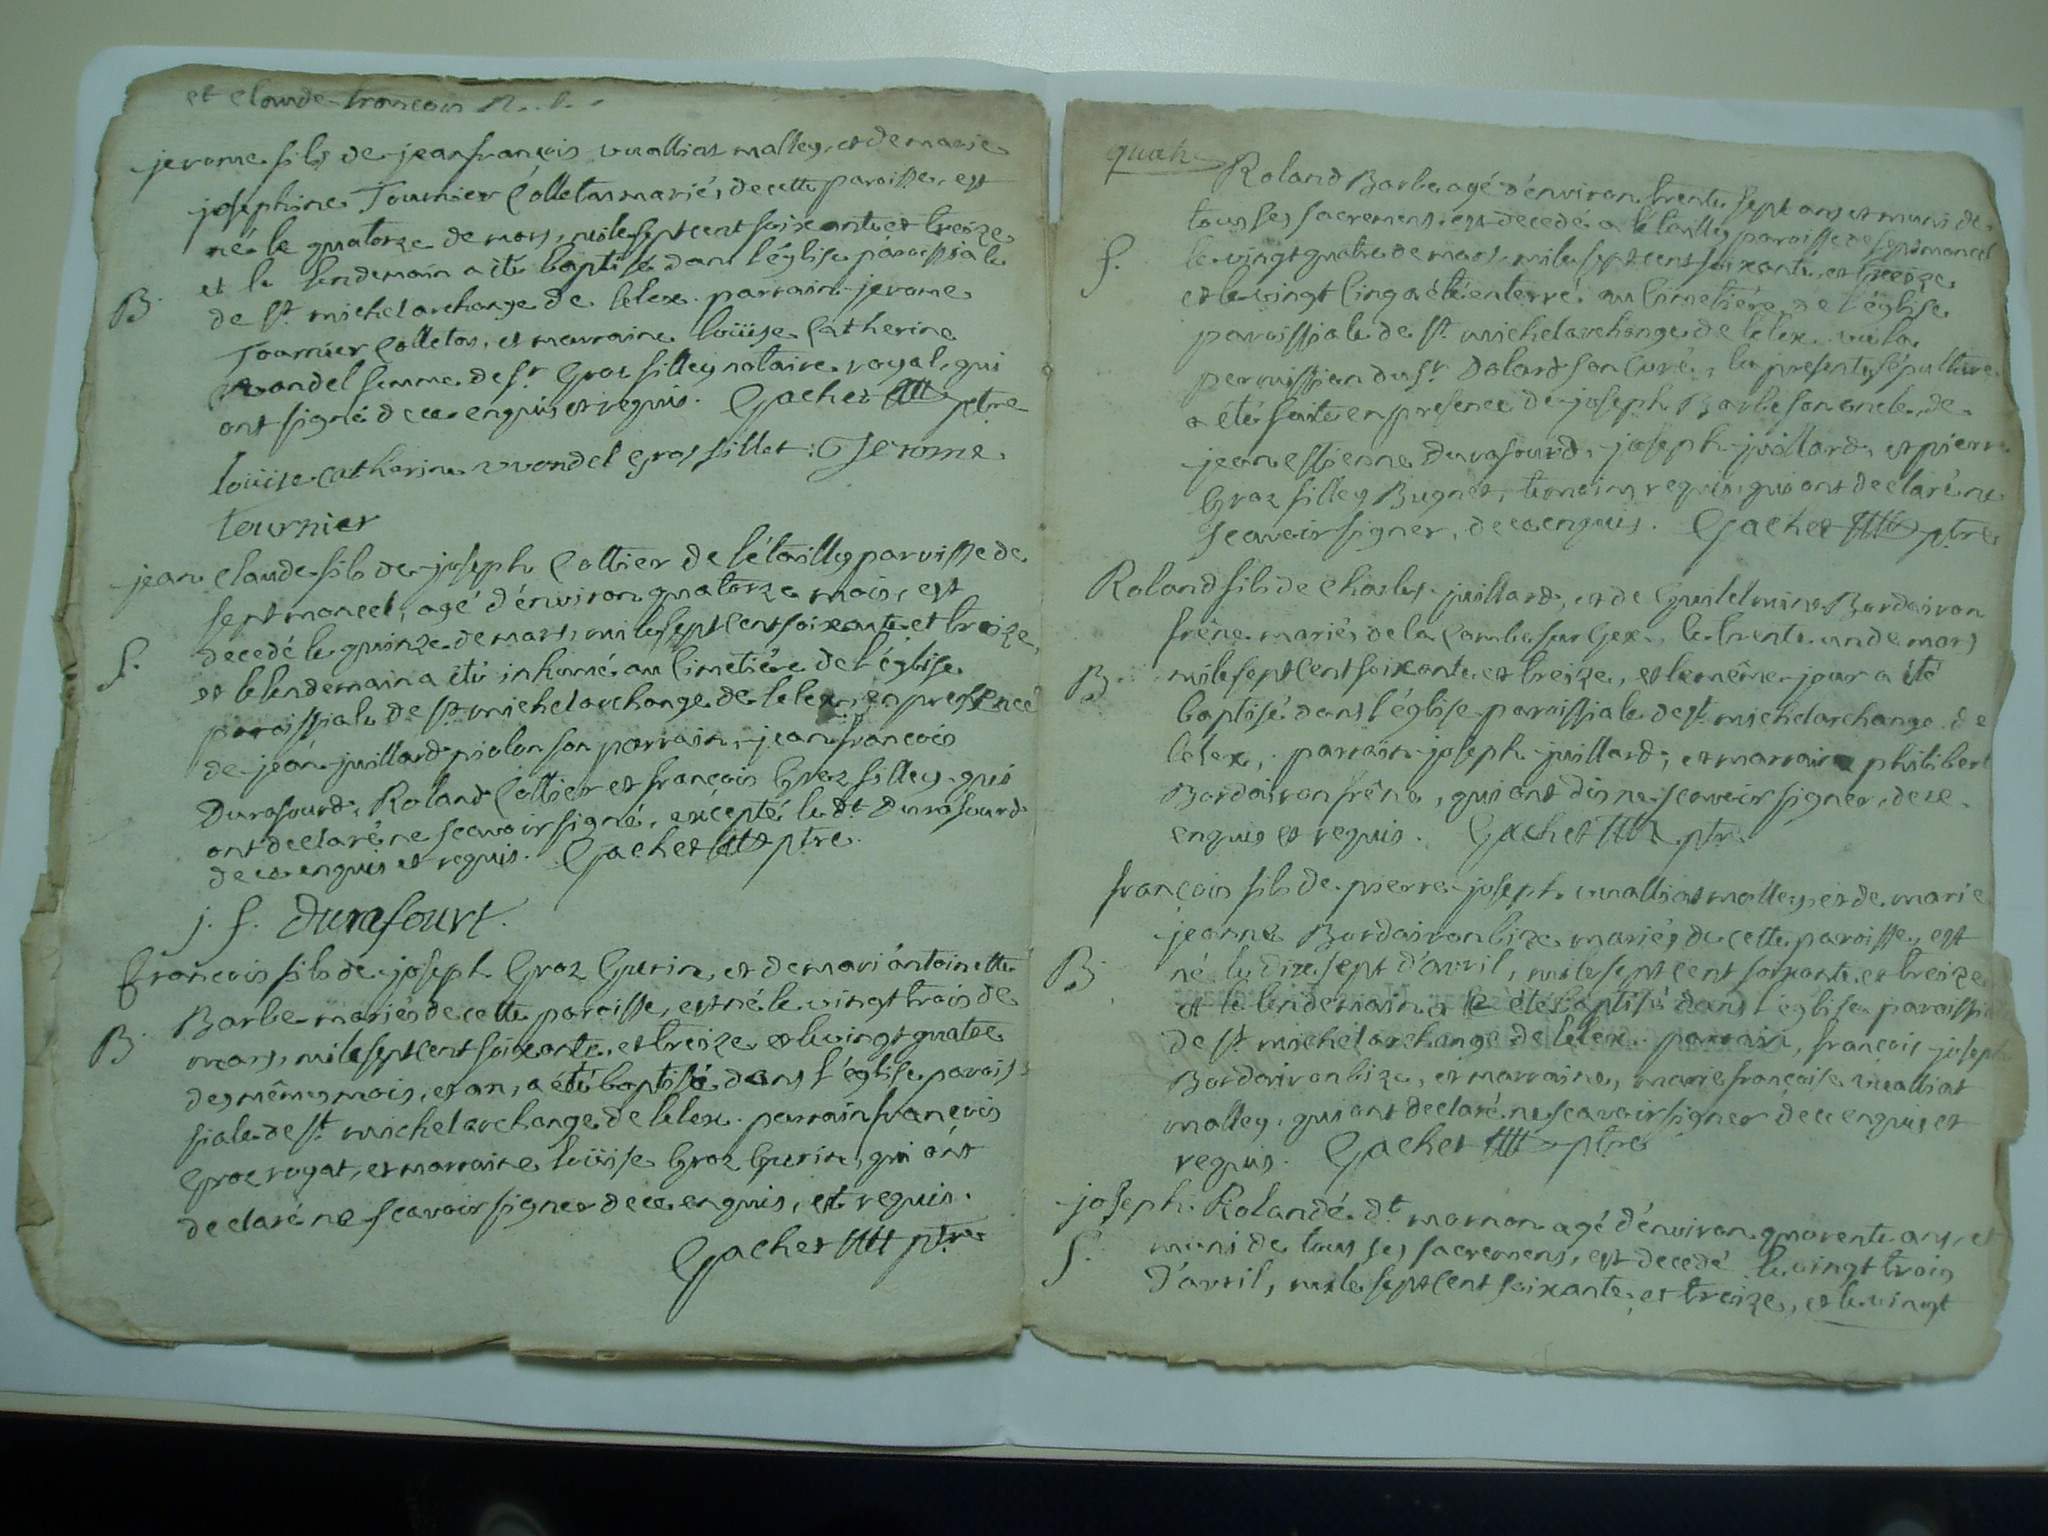 et claude francois
jerome fils de jeanfrançois vuallias malley, et de marie
josephine Tournier Colletas mariés de cette paroisse, est
né le quatorze de mars, mile sept cent soixante et treize,
et le lendemain a été baptisé dans l'église paroissiale
B.
de st. michel archange de lelex. parrain jerome
Tournier Colletas, et marraine loüise Catherine
Wandel femme de sr. Groz filley notaire royal, qui
ont signé de ce enquis et requis. Gachet ptre
loüise catherine wandel gros fillet. Jerome
tournier
jean claude fils de joseph Cottier de l'étailly paroisse de
septmoncel, agé d'environ quatorze mois, est
S.
decedé le quinze de mars, mile sept cent soixante et treize,
et le lendemain a été inhumé au cimetière de l'église
paroissiale de st. michel archange de lelex, en presence
de jean juillard piolon son parrain, jean françois
Durafourd, Roland Cottier et françois Groz filley qui
ont declaré ne scavoir signé, excepté le dt. Durafourd
de ce enquis et requis. Gachet ptre.
j. f. Durafourt.
francois fils de joseph Groz Gurin, et de mari antoinette
Barbe mariés de cette paroisse, est né le vingt trois de
B.
mars, mile sept cent soixante et treize et le vingt quatre
des mêmes mois, et an, a été baptisé dans l'église parois
siale de st. michel archange de lelex. parrain françois
Groz royat, et marraine loüise Groz Gurin, qui ont
declaré ne scavoir signer de ce enquis, et requis.
Gachet ptre
quatre
Roland Barbe agé d'environ trente sept ans et muni de
tous ses sacremens, est decedé a l'étailly paroisse de septmoncel
S.
le vingt quatre de mars mile sept cent soixante et treize,
et le vingt cinq a été enterré au cimetière de l'église
paroissiale de st. michel archange de lelex. vu la
permission du sr. Dalard son curé, la presente sépulture
a été faite en presence de joseph Barbe son oncle, de
jean estienne Durafourd, joseph juillard, et pierre
Groz filley Bugnet, temoins requis, qui ont declaré ne
scavoir signer, de ce enquis. Gachet ptre
Roland fils de Charles juillard, et de Guillelmine Burdairon
frêne mariés de la Combe sur Gex, le trente un de mars
B.
mile sept cent soixante et treize, et le même jour a été
baptisé dans l'église paroissiale de st. michel archange de
lelex, parrain joseph juillard, et marraine philibert
Burdairon frêne, qui ont dis ne scavoir signer, de ce
enquis et requis. Gachet ptre
françois fils de pierre joseph vuallias malley, et de marie
jeanne Burdairon bize mariés de cette paroisse, est
B.
né le dix sept d'avril, mile sept cent soixante et treize
et le lendemain a été baptisé dans l'église paroissiale
de st. michel archange de lelex. parrain, françois joseph
Burdairon bize, et marraine, marie françoise vuallias
malley, qui ont declaré ne scavoir signer de ce enquis et
requis. Gachet ptre
joseph Rolandé dt. mornon agé d'environ quarente ans, et
muni de tous ses sacremens, est decedé le vingt trois
S.
d'avril, mile sept cent soixante, et treize, et le vingt